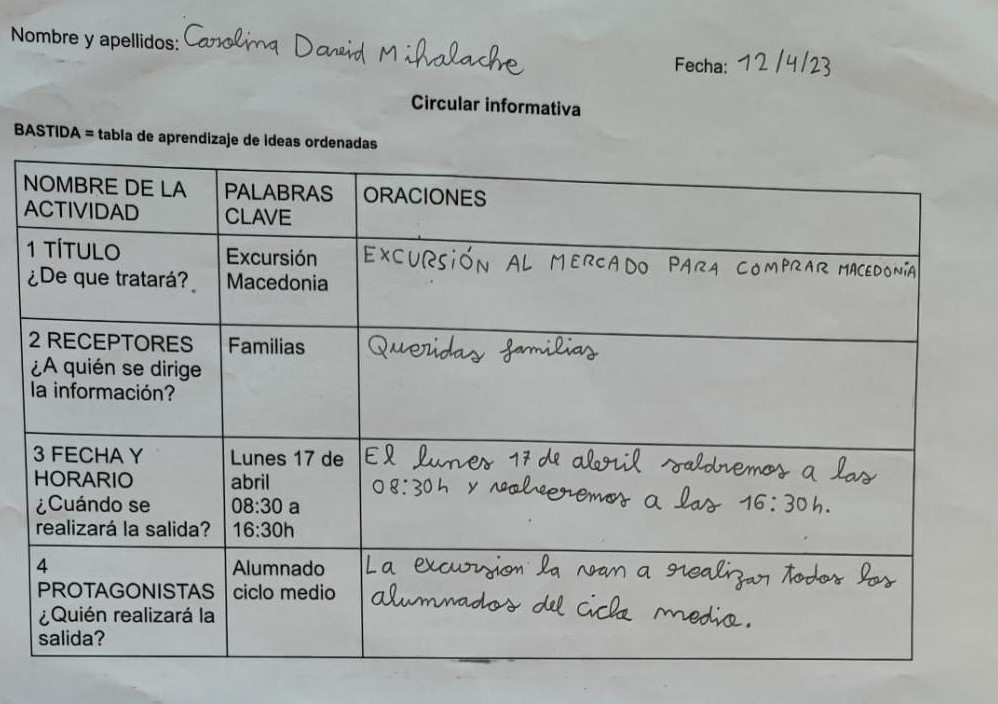 Nombre y apellidos: Carolina David Mihalache
Fecha: 12/4/23
Circular informativa
BASTIDA = tabla de aprendizaje de ideas ordenadas
NOMBRE DE LA
ACTIVIDAD
PALABRAS
CLAVE
ORACIONES
1 TÍTULO
¿De que tratará?
Excursión
Macedonia
EXCURSIÓN AL MERCADO PARA COMPRAR MACEDONIA
2 RECEPTORES
¿A quién se dirige
la información?
Familias
Queridas familias
3 FECHA Y
HORARIO
¿Cuándo se
realizará la salida?
Lunes 17 de
abril
08:30 a
16:30h
El lunes 17 de abril saldremos a las
08:30h y volveremos a las 16:30h.
4
PROTAGONISTAS
¿Quién realizará la
salida?
Alumnado
ciclo medio
La excursion la van a realizar todos los
alumnados del cicla medio.